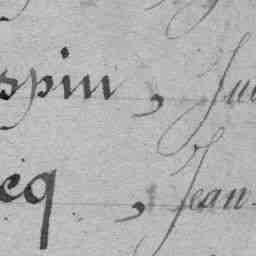 spin, Jul
cq, Jean-